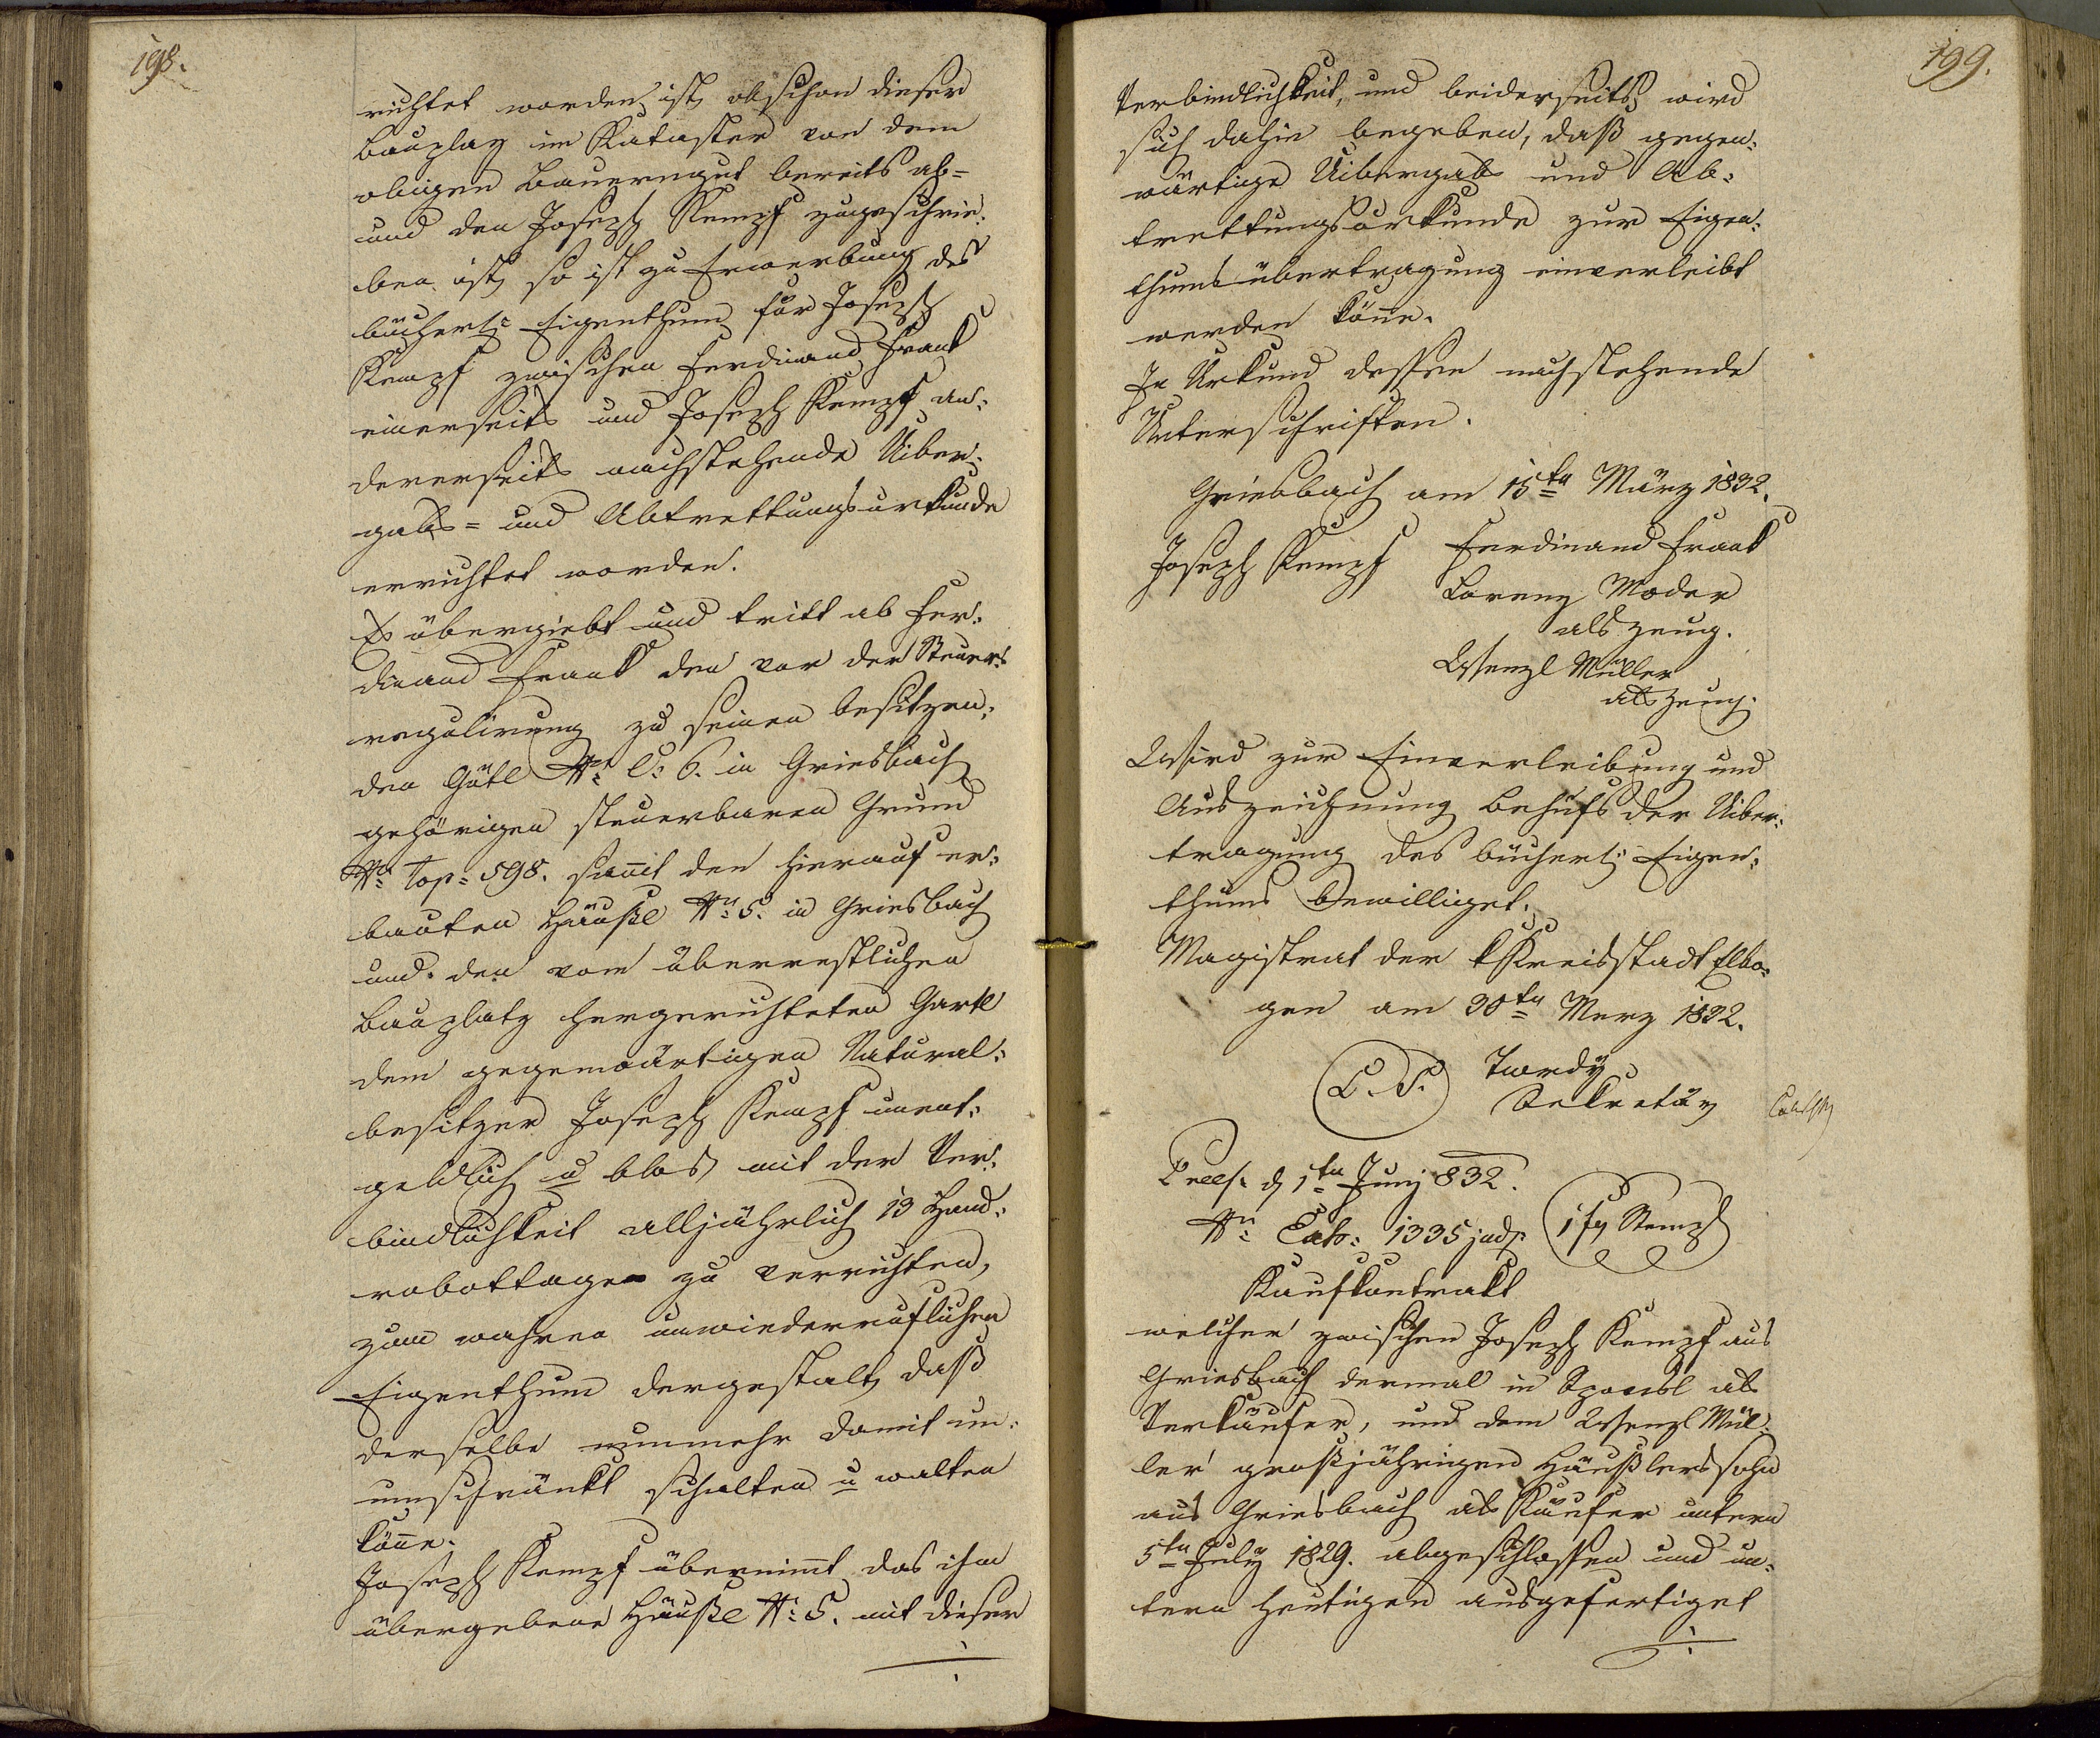 198.
richtet worden ist, obschon dieser
Bauplaz im Kataster von dem
obigen Bauerngut bereits ab-
und den Joseph Kempf zugeschrie-
ben ist, so ist zu Erwerbung des
bücherl: Eigenthum für Joseph
Kempf zwischen Ferdinand Frank
einerseits und Joseph Kempf an-
dererseits nachstehende Uiber-
gabs- und Abtrettungsurkunde
errichtet worden.
Es übergiebt und tritt ab Fer-
dinand Frank den vor der Steuer-
regulirung zu seinen besitzen-
den Gütl N: C: 6. in Griesbach
gehörigen steuerbaren Grund
N: Top: 598. samt den hierauf er-
bauten Häußl N: 5. in Griesbach
und den vom überrestlichen
Bauplatz hergerichteten Gartl
dem gegenwärtigen Natural-
besitzer Joseph Kempf unent-
geldlich u blos mit der Ver-
bindlichkeit alljährlich 13 Hand-
robottage zu verrichten,
zum wahren unwiederruflichen
Eigenthum dergestalt, daß
derselbe nunmehr damit un-
umschränkt schalten u walten
könne.
Joseph Kempf übernimt das ihm
übergebene Häußl N: 5. mit dieser
199.
Verbindlichkeit, und beiderseits wird
sich dahin begeben, daß gegen-
wärtige Uibergabs und Ab-
trettungsurkunde zur Eigen-
thumsübertragung einverleibt
werden könne.
In Urkund dessen nachstehende
Unterschriften.
Griesbach am 15ten März 1832.
Joseph Kempf Ferdinand Frank
Lorenz Moder
als Zeug.
Wenzl Müller
als Zeug.
Wird zur Einverleibung und
Auszeichnung behufs der Uiber-
tragung des bücherl: Eigen-
thums bewilliget.
Magistrat der k Kreisstadt Elbo-
gen am 30ten Merz 1832.
L. S. Twrdy
Sekretär
Preß. d 1ten Juny 832.
N: Exh: 1335 jud. 1 fx Stempl
Kaufkontrakt
welcher zwischen Joseph Kempf aus
Griesbach dermal in als
Verkäufer, und dem Wenzl Mül-
ler großjährigen Häußlerssohn
aus Griesbach als Käufer untern
5ten July 1829. abgeschlossen und un-
tern heutigen ausgefertiget